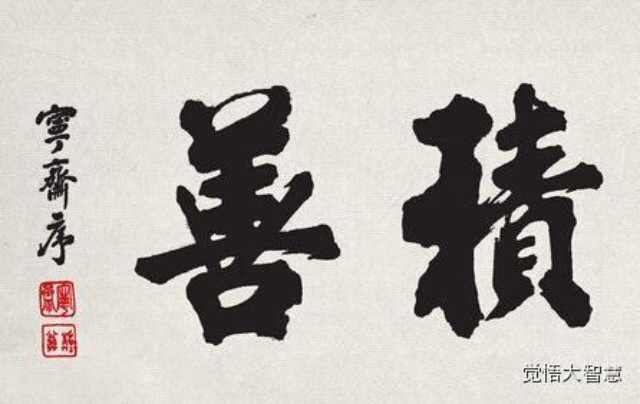 積善
寧齋序
觉悟大智慧